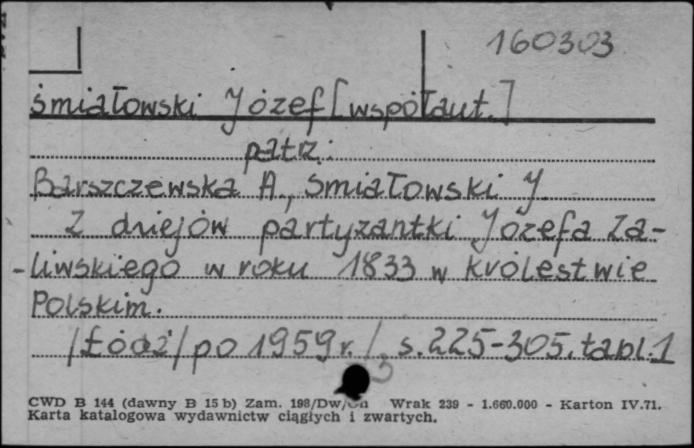 160303
Śmiałowski Józef [współaut.]
patrz:
Barszczewska A., Śmiałowski J.
Z dziejów partyzantki Józefa Za-
liwskiego w roku 1833 w Królestwie
Polskim.
/Łódź/ po 1959 r. / s. 225-305. tabl. 1
3
CWD B 144 (dawny B 15 b) Zam. 198/Dw/ Wrak 239 - 1.660.000 - Karton IV.71.
Karta katalogowa wydawnictw ciągłych i zwartych.